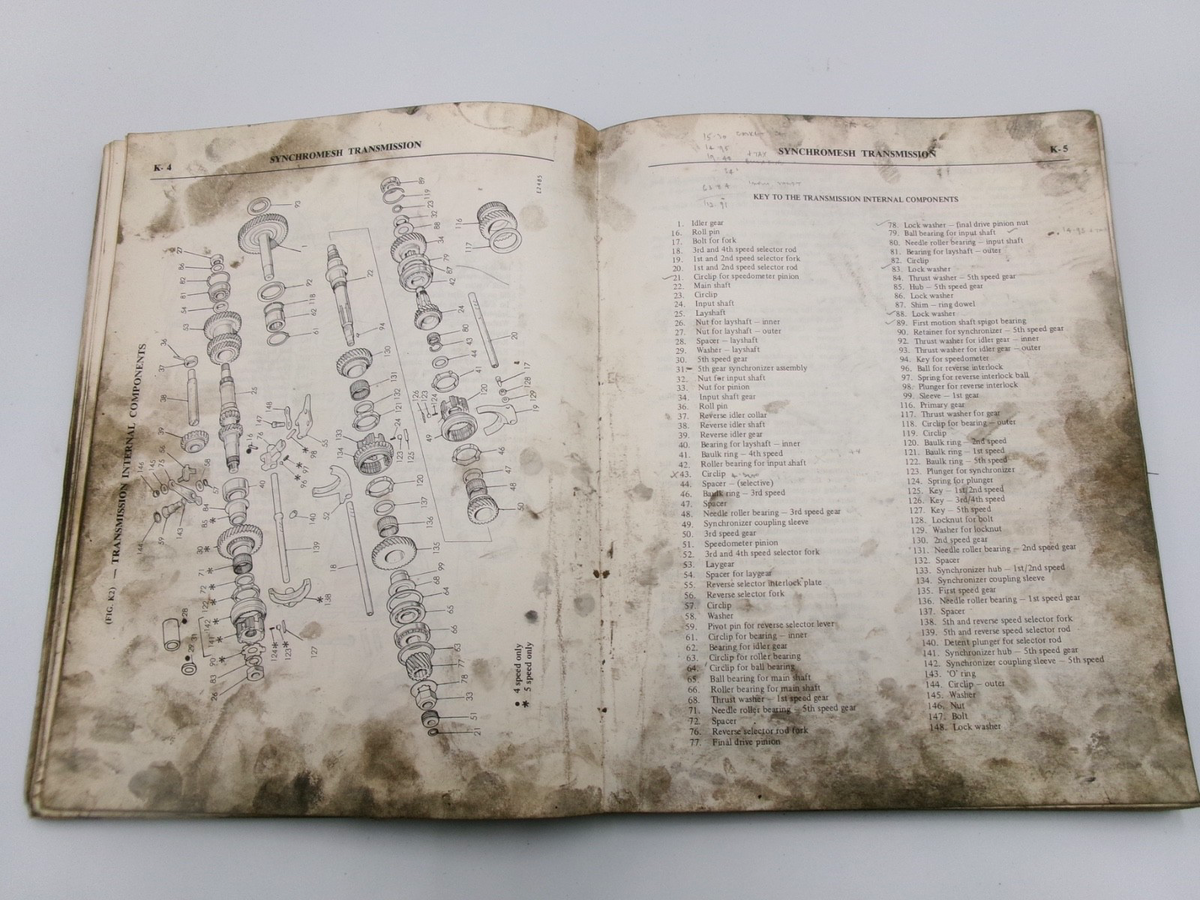 K-4
SYNCHROMESH TRANSMISSION
(FIG. K2) — TRANSMISSION INTERNAL COMPONENTS
• 4 speed only
* 5 speed only
SYNCHROMESH TRANSMISSION
K-5
KEY TO THE TRANSMISSION INTERNAL COMPONENTS
1. Idler gear
16. Roll pin
17. Bolt for fork
18. 3rd and 4th speed selector rod
19. 1st and 2nd speed selector fork
20. 1st and 2nd speed selector rod
21. Circlip for speedometer pinion
22. Main shaft
23. Circlip
24. Input shaft
25. Layshaft
26. Nut for layshaft — inner
27. Nut for layshaft — outer
28. Spacer — layshaft
29. Washer — layshaft
30. 5th speed gear
31. 5th gear synchronizer assembly
32. Nut for input shaft
33. Nut for pinion
34. Input shaft gear
36. Roll pin
37. Reverse idler collar
38. Reverse idler shaft
39. Reverse idler gear
40. Bearing for layshaft — inner
41. Baulk ring — 4th speed
42. Roller bearing for input shaft
43. Circlip
44. Spacer — (selective)
46. Baulk ring — 3rd speed
47. Spacer
48. Needle roller bearing — 3rd speed gear
49. Synchronizer coupling sleeve
50. 3rd speed gear
51. Speedometer pinion
52. 3rd and 4th speed selector fork
53. Laygear
54. Spacer for laygear
55. Reverse selector interlock plate
56. Reverse selector fork
57. Circlip
58. Washer
59. Pivot pin for reverse selector lever
61. Circlip for bearing — inner
62. Bearing for idler gear
63. Circlip for roller bearing
64. Circlip for ball bearing
65. Ball bearing for main shaft
66. Roller bearing for main shaft
68. Thrust washer — 1st speed gear
71. Needle roller bearing — 5th speed gear
72. Spacer
76. Reverse selector rod fork
77. Final drive pinion
78. Lock washer — final drive pinion nut
79. Ball bearing for input shaft
80. Needle roller bearing — input shaft
81. Bearing for layshaft — outer
82. Circlip
83. Lock washer
84. Thrust washer — 5th speed gear
85. Hub — 5th speed gear
86. Lock washer
87. Shim — ring dowel
88. Lock washer
89. First motion shaft spigot bearing
90. Retainer for synchronizer — 5th speed gear
92. Thrust washer for idler gear — inner
93. Thrust washer for idler gear — outer
94. Key for speedometer
96. Ball for reverse interlock
97. Spring for reverse interlock ball
98. Plunger for reverse interlock
99. Sleeve — 1st gear
116. Primary gear
117. Thrust washer for gear
118. Circlip for bearing — outer
119. Circlip
120. Baulk ring — 2nd speed
121. Baulk ring — 1st speed
122. Baulk ring — 5th speed
123. Plunger for synchronizer
124. Spring for plunger
125. Key — 1st/2nd speed
126. Key — 3rd/4th speed
127. Key — 5th speed
128. Locknut for bolt
129. Washer for locknut
130. 2nd speed gear
131. Needle roller bearing — 2nd speed gear
132. Spacer
133. Synchronizer hub — 1st/2nd speed
134. Synchronizer coupling sleeve
135. First speed gear
136. Needle roller bearing — 1st speed gear
137. Spacer
138. 5th and reverse speed selector fork
139. 5th and reverse speed selector rod
140. Detent plunger for selector rod
141. Synchronizer hub — 5th speed gear
142. Synchronizer coupling sleeve — 5th speed
143. 'O' ring
144. Circlip — outer
145. Washer
146. Nut
147. Bolt
148. Lock washer